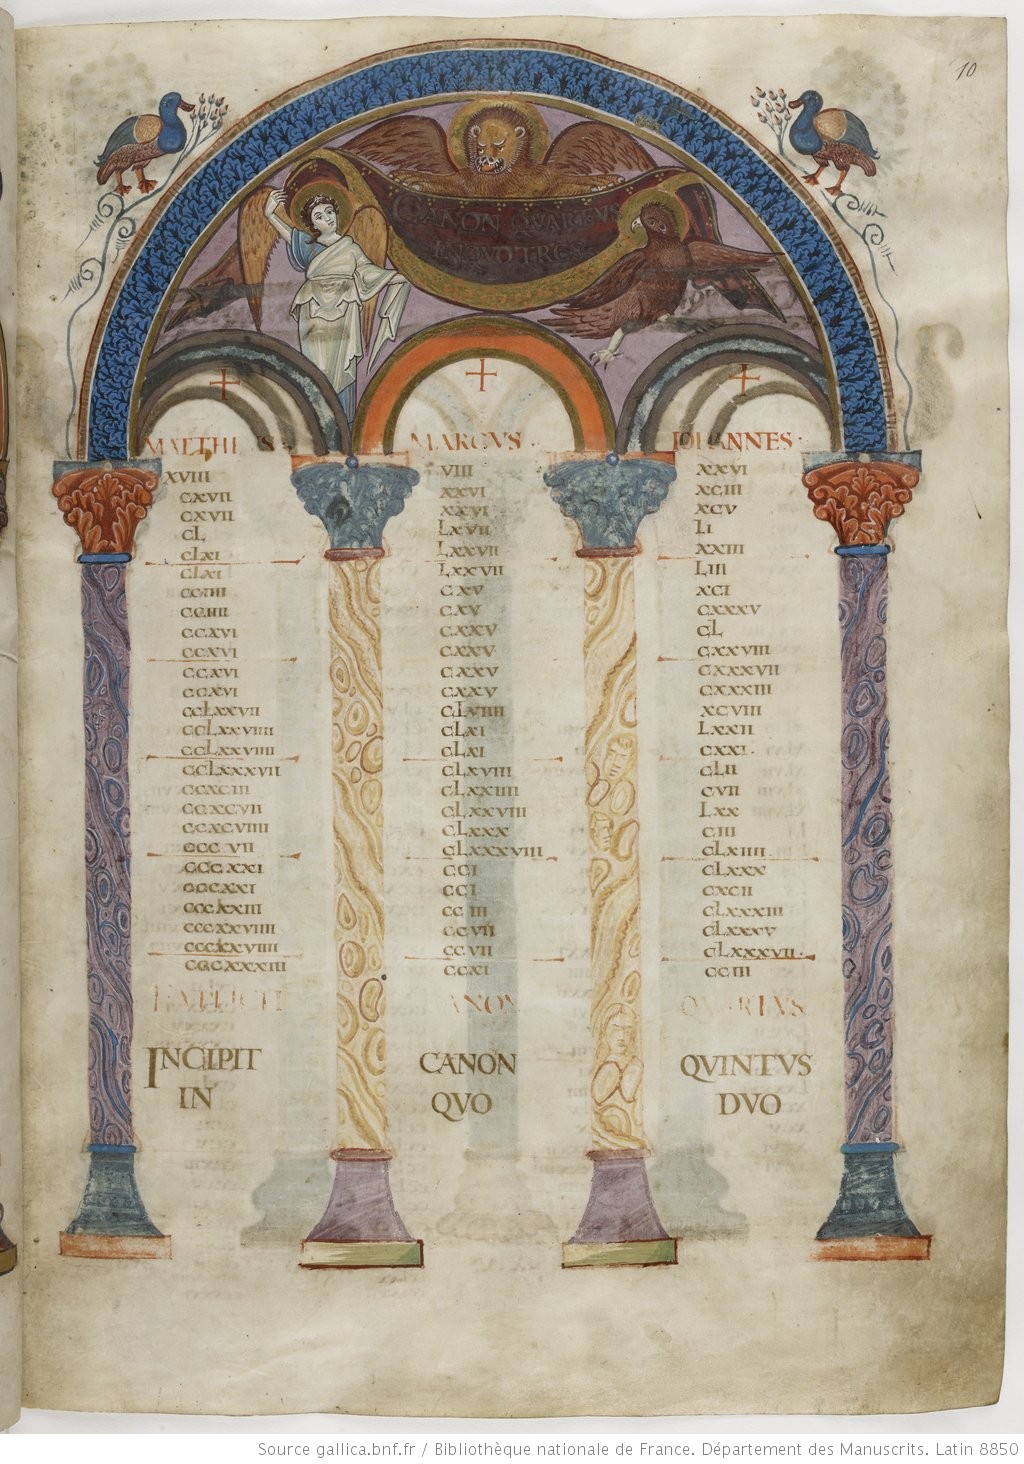 10
CANON QVARTVS
IN QVO TRES
MATTHEVS
XVIII
CXVII
CXVII
CL
CLXI
CLXI
CCIIII
CCIIII
CCXVI
CCXVI
CCXVI
CCXVI
CCLXXVII
CCLXXVIIII
CCLXXVIIII
CCLXXXVII
CCXCIII
CCXCVII
CCXCVIIII
CCCVII
CCCXXI
CCCXXI
CCCXXIII
CCCXXVIIII
CCCXXVIIII
CCCXXXIII
MARCVS ·
VIII
XXVI
XXVI
LXVII
LXXVII
LXXVII
CXV
CXV
CXXV
CXXV
CXXV
CXXV
CLVIIII
CLXI
CLXI
CLXVIII
CLXXIIII
CLXXVIII
CLXXX
CLXXXVIII
CCI
CCI
CCIII
CCVII
CCVII
CCXI
IOHANNES ·
XXVI
XCIII
XCV
LI
XXIII
LIII
XCI
CXXXV
CL
CXXVIII
CXXXVII
CXXXIII
XCVIII
LXXII
CXXI ·
CLII
CVII
LXX
CIII
CLXIIII
CLXXX
CXCII
CLXXXIII
CLXXXV
CLXXXVII
CCIII
EXPLICIT CANON QVARTVS
INCIPIT CANON QVINTVS
IN QVO DVO
Source gallica.bnf.fr / Bibliothèque nationale de France. Département des Manuscrits. Latin 8850